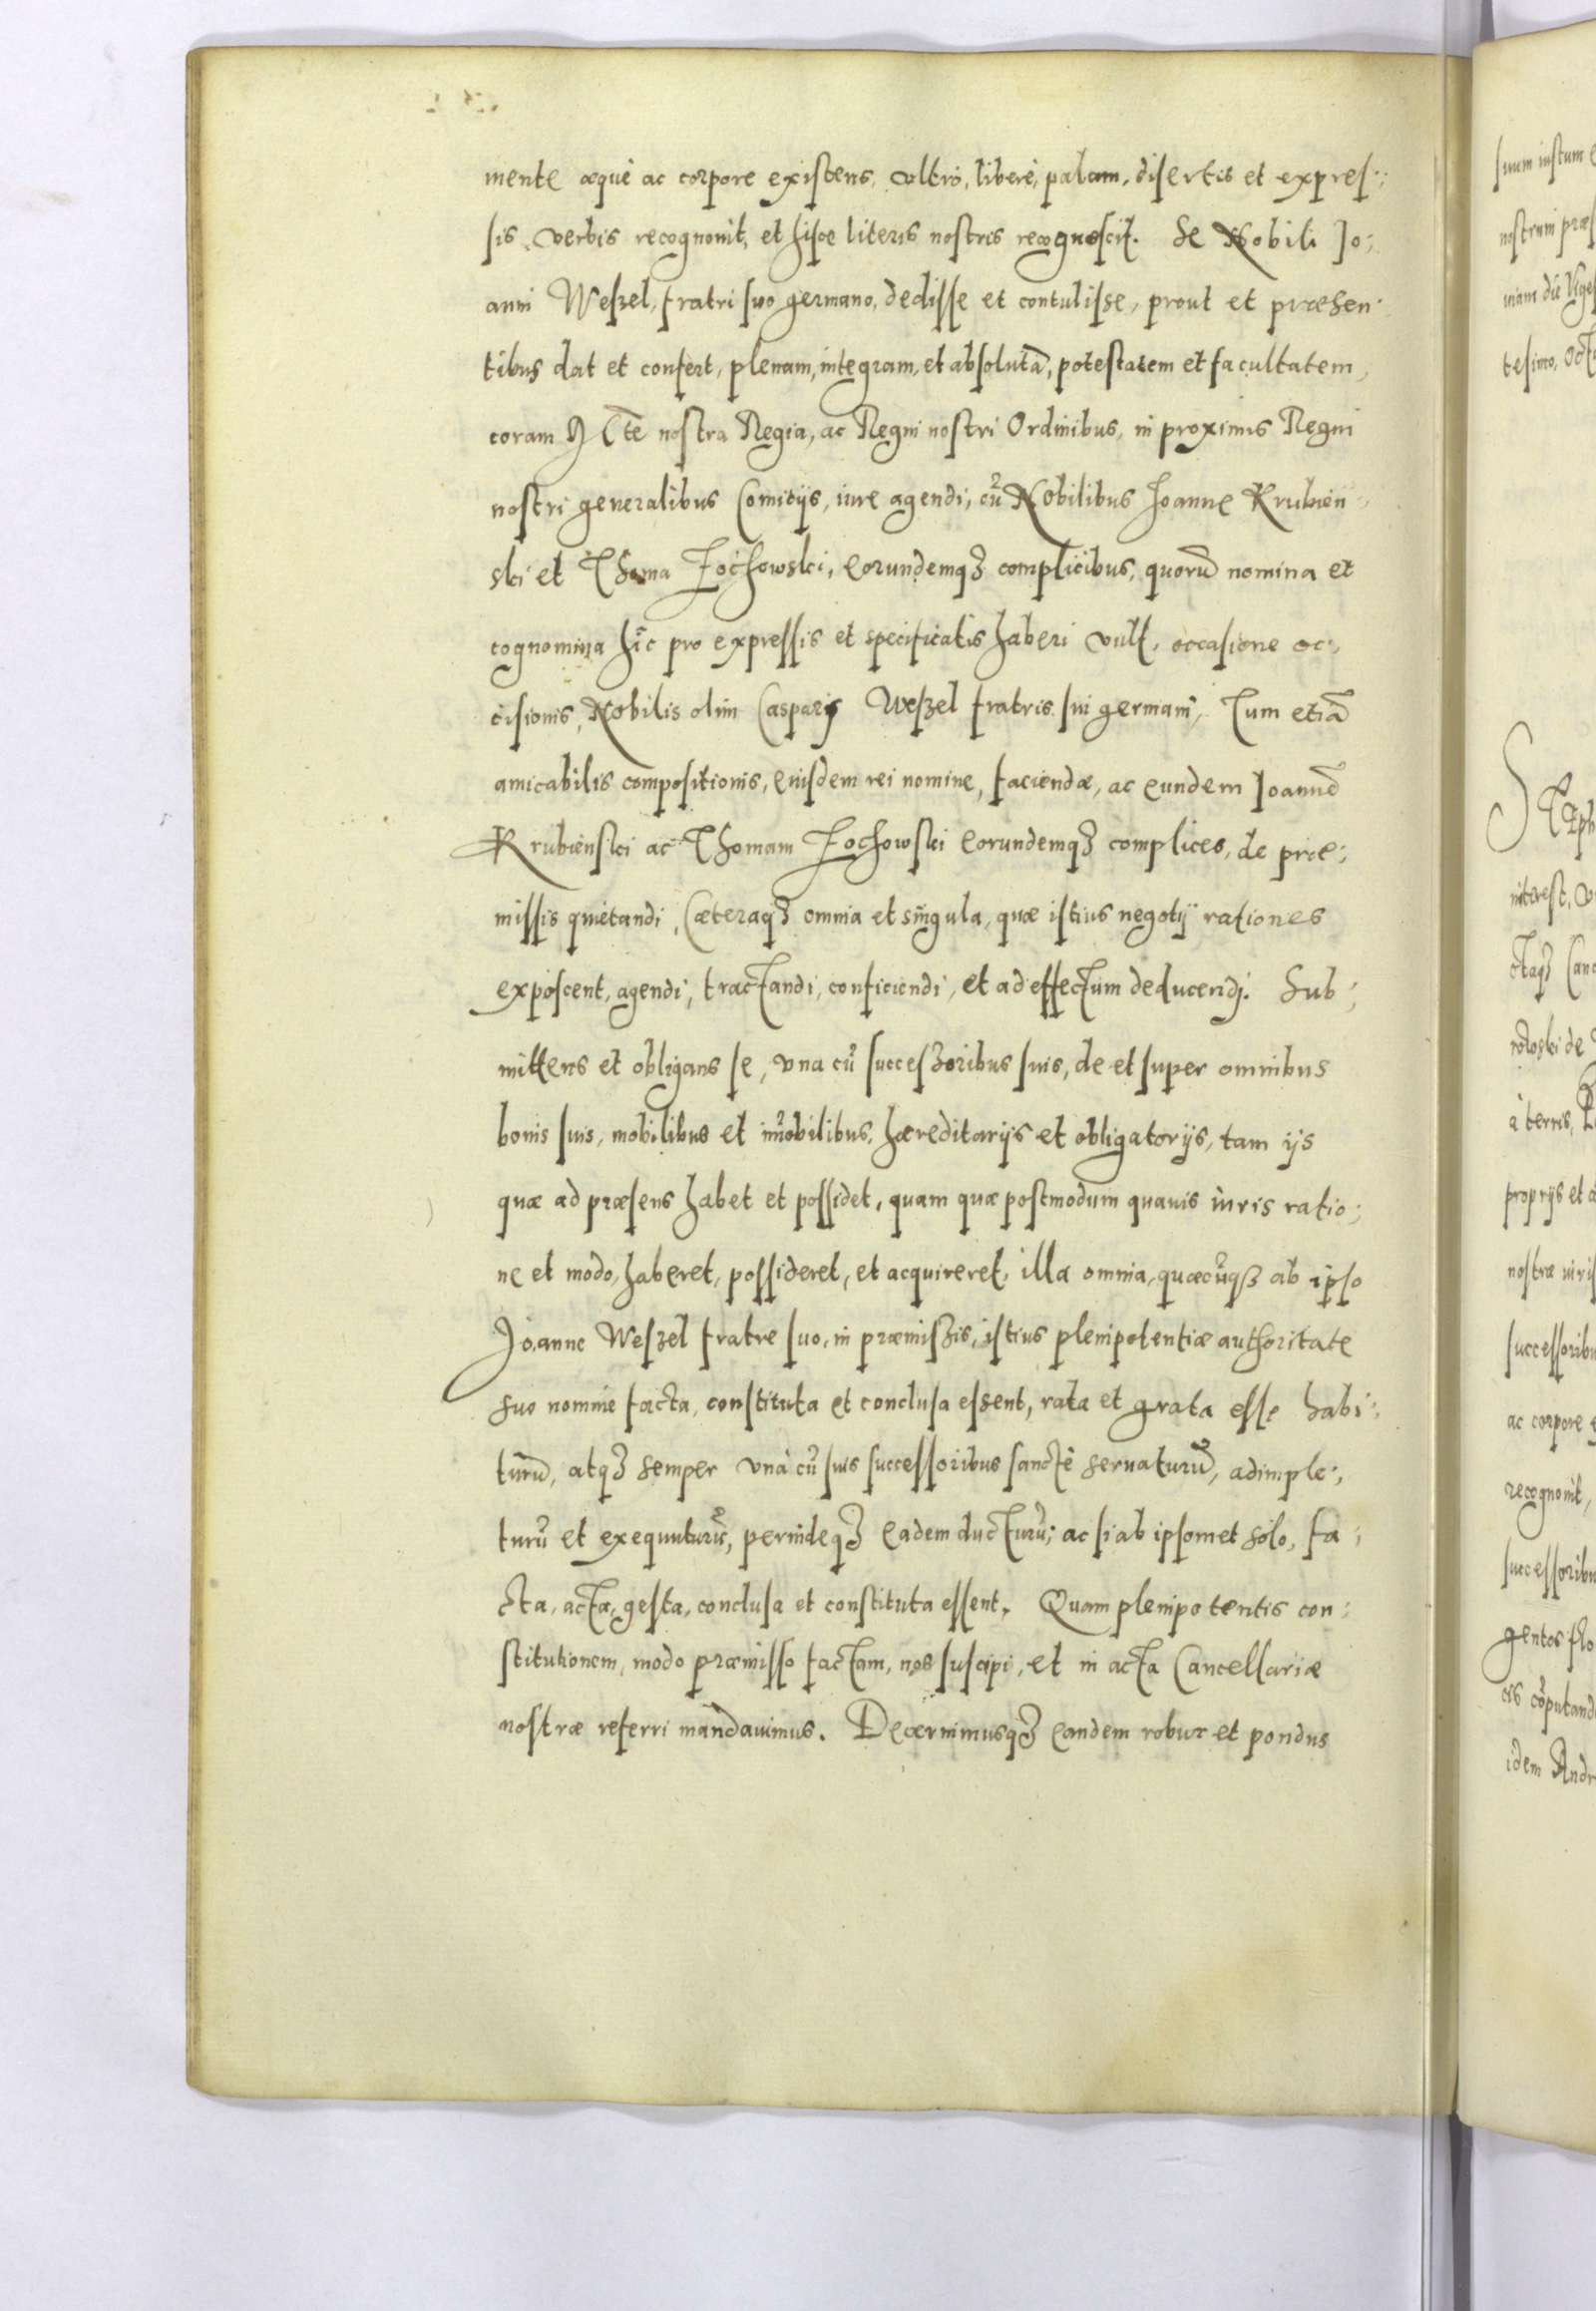 mente æquè ac corpore existens, vltrò, liberè, palam, disertis et expres:
sis verbis recognouit, et hisce literis nostris recognoscit. Se Nobili Jo:
anni Weszel, fratri suo germano, dedisse et contulisse, prout et præsen:
tibus dat et confert, plenam, integram, et absolutã, potestatem et facultatem,
coram M̃te nostra Regia, ac Regni nostri Ordinibus, in proximis Regni
nostri generalibus Comitijs, iure agendi, cũ Nobilibus Joanne Krubień:
ski et Thoma Zochowski, eorundemqȝ complicibus, quorũ nomina et
cognomina hîc pro expressis et specificatis haberi vult, occasione oc:
cisionis, Nobilis olim Casparis Weszel fratris sui germani, Tum etiã
amicabilis compositionis, eiusdem rei nomine, faciendæ, ac eundem Joannẽ
Krubieński ac Thomam Zochowski eorundemqȝ complices, de præ:
missis quietandi, Cæteraqȝ omnia et singula, quæ istius negotij rationes
exposcent, agendi, tractandi, conficiendi, et ad effectum deducendi. Sub:
mittens et obligans se, vna cũ successoribus suis, de et super omnibus
bonis suis, mobilibus et im̃obilibus, hæreditarijs et obligatorijs, tam ijs
quæ ad præsens habet et possidet, quam quæ postmodum quauis iuris ratio:
ne et modo, haberet, possideret, et acquireret, illa omnia, quæcũqȝ ab ipso
Joanne Weszel fratre suo, in præmissis, istius plenipotentiæ authoritate
suo nomine facta, constituta et conclusa essent, rata et grata esse habi:
turũ, atqȝ semper vnà cũ suis successoribus sanctè seruaturũ, adimple:
turũ et exequuturũ, perindeqȝ eadem ducturũ; ac si ab ipsomet solo, fa:
cta, acta, gesta, conclusa et constituta essent. Quam plenipotentis con:
stitutionem, modo præmisso factam, nos suscipi, et in acta Cancellariæ
nostræ referri mandauimus. Decernimusqȝ eandem robur et pondus